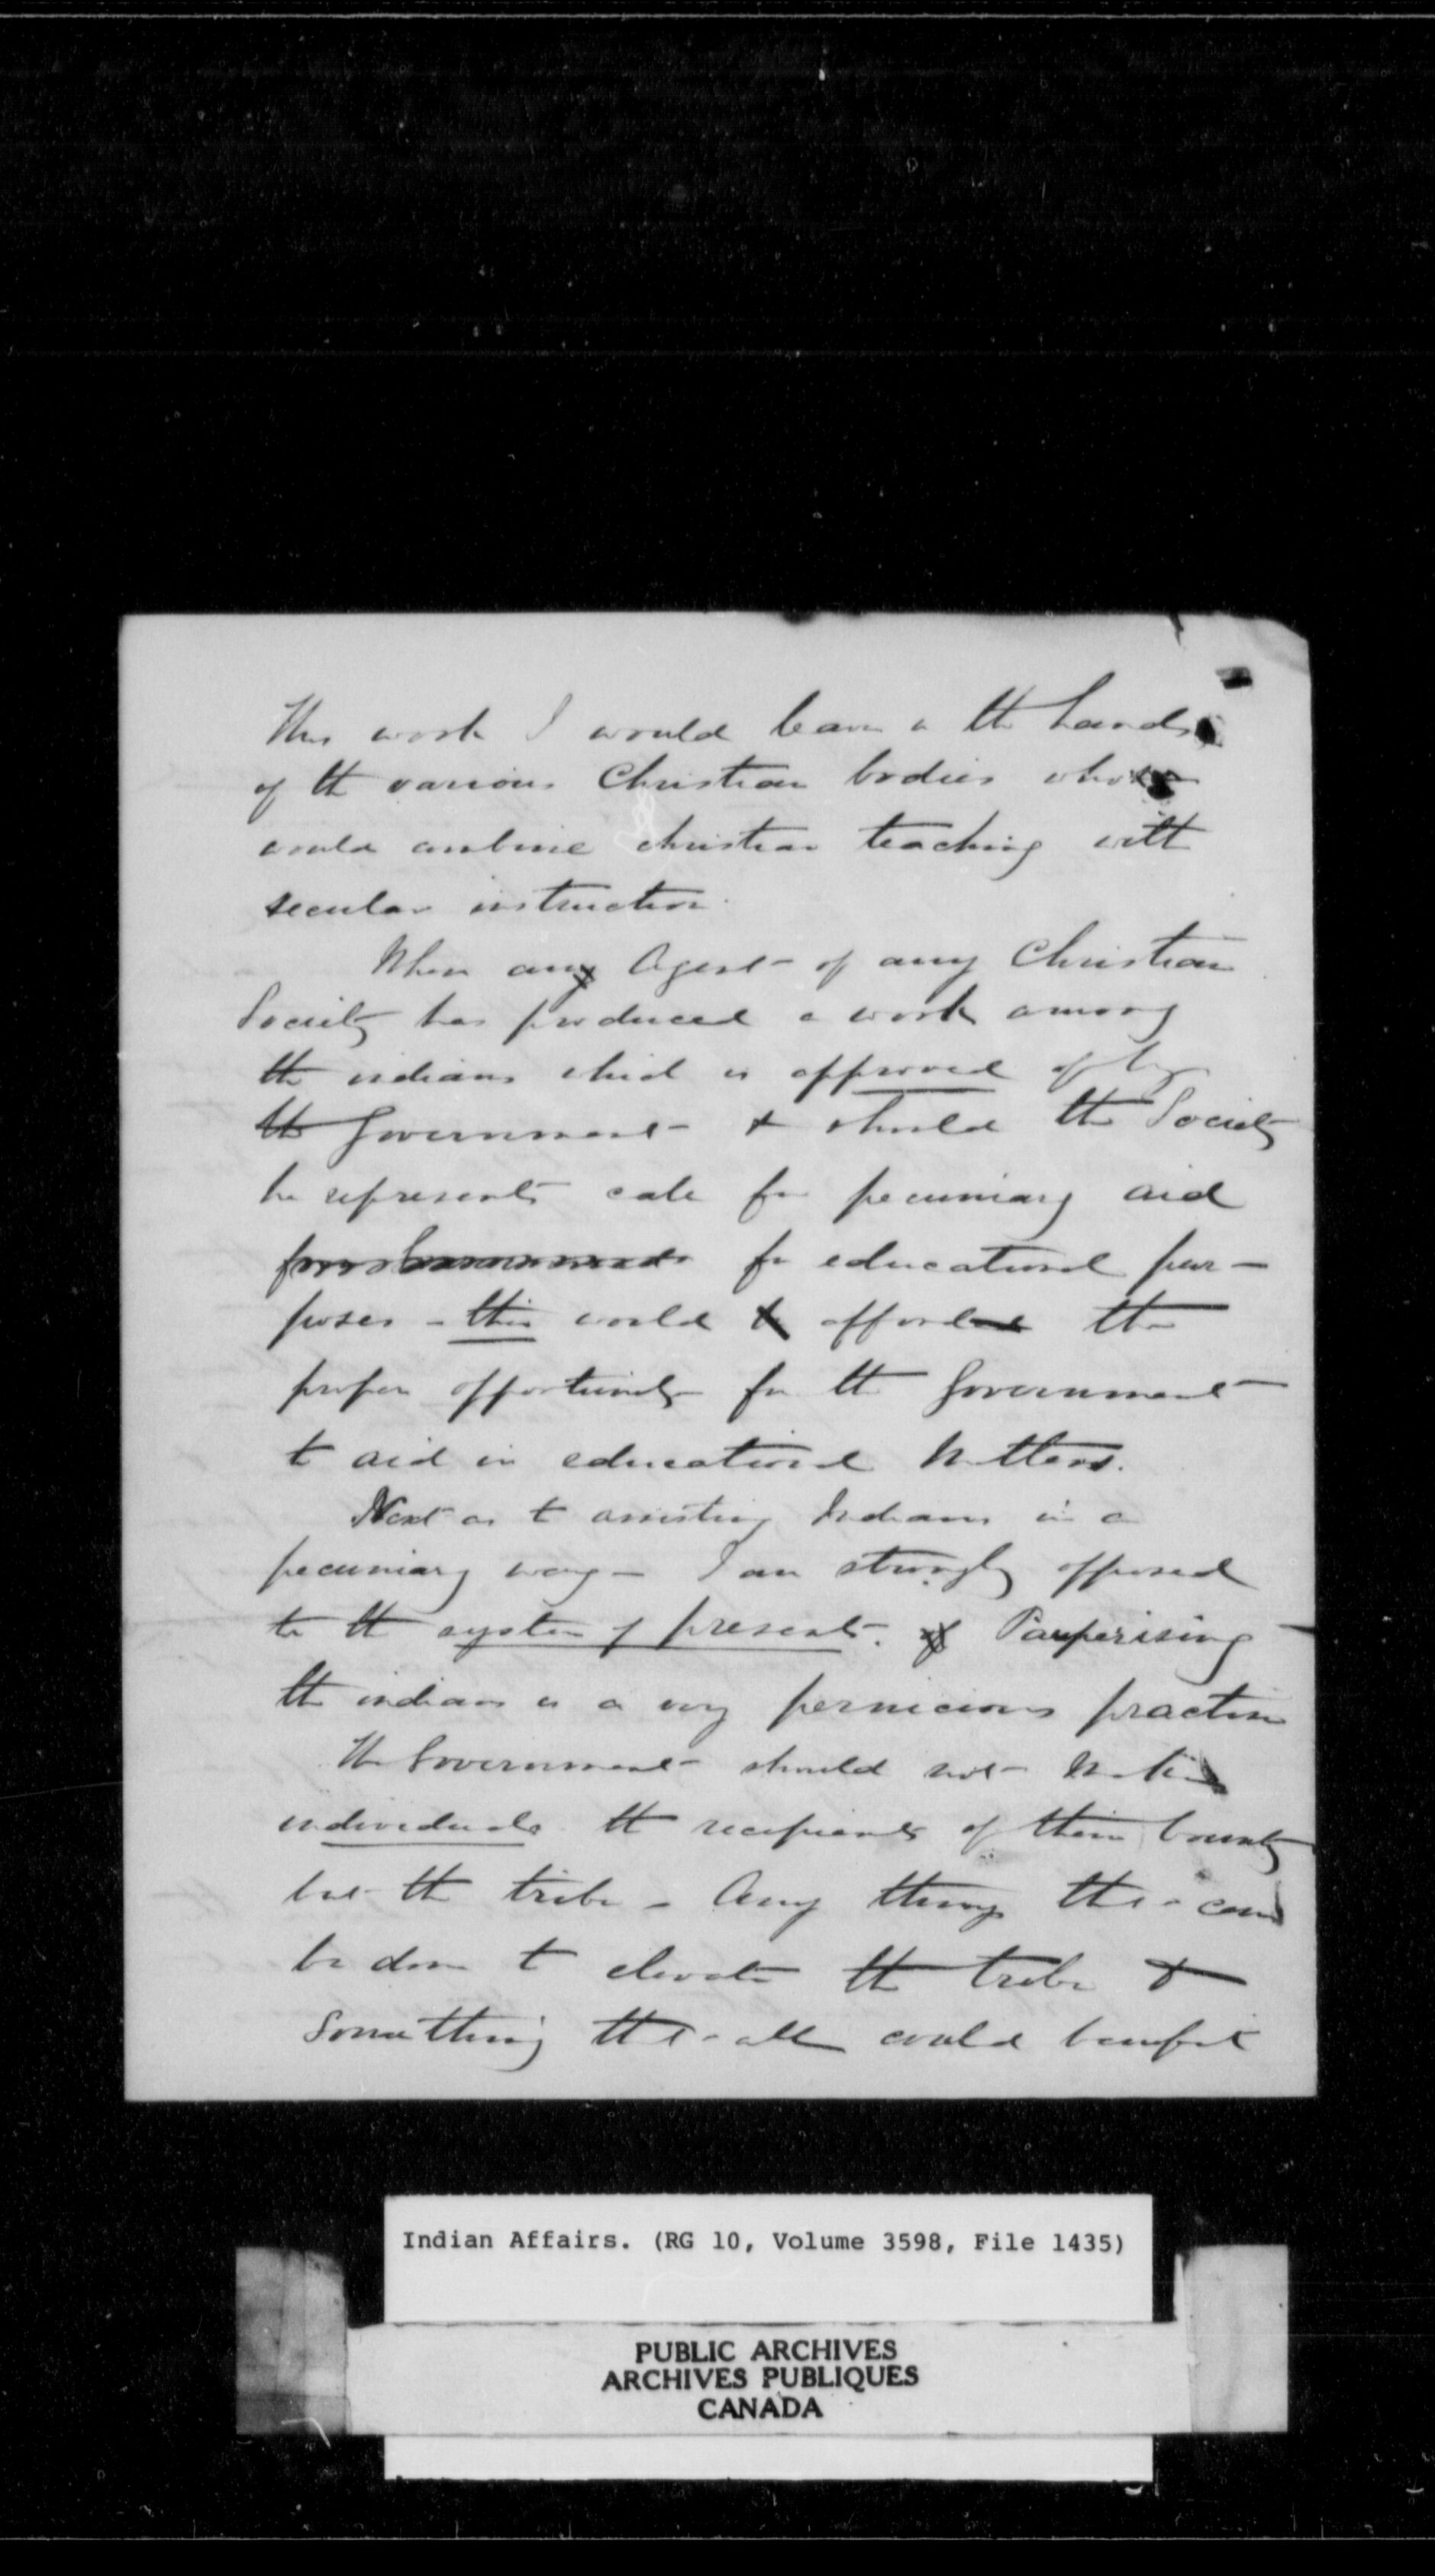 This work I would leave in the hands
of the various Christian bodies who
would combine christian teaching with
secular instruction.
When any Agent of any Christian
Society has produced a work among
the indians which is approved of by
the Government & should the Society
he represents call for pecuniary aid
for educational pur-
poses - this would afford the
proper opportunity for the Government
to aid in educational matters.
Next as to assisting Indians in a
pecuniary way - I am strongly opposed
to the system of presents. Pauperising
the indians is a very pernicious practice
The Government should not make
individuals the recipients of their bounty
but the tribe - Any thing that can
be done to elevate the tribe &
something that all could benefit
Indian Affairs. (RG 10, Volume 3598, File 1435)
PUBLIC ARCHIVES
ARCHIVES PUBLIQUES
CANADA